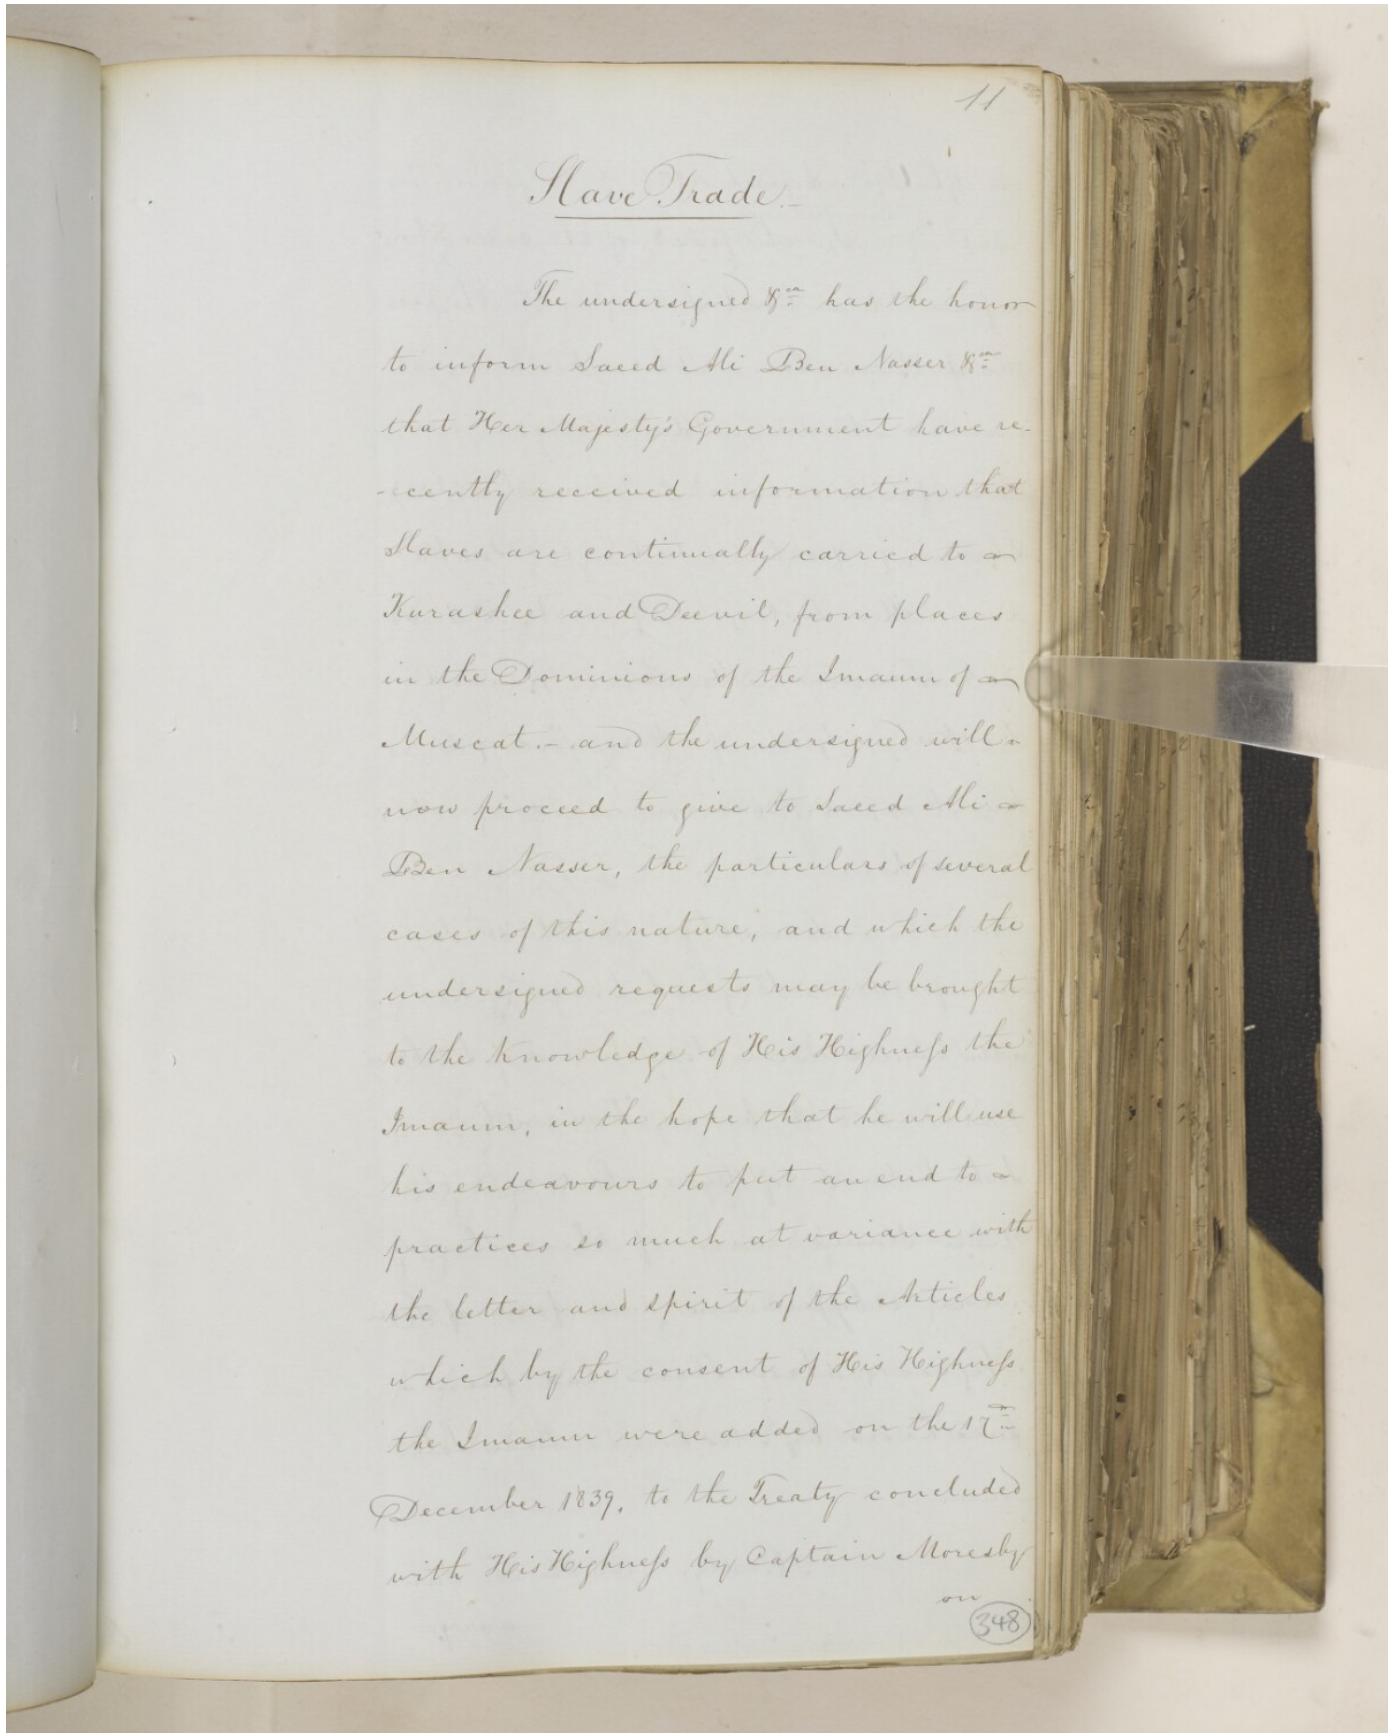 11
Slave Trade.-
The undersigned &ca has the honor
to inform Saeed Ali Ben Nasser &ca
that Her Majesty's Government have re-
-cently received information that
Slaves are continually carried to
Kurashee and Deevil, from places
in the Dominions of the Imaum of
Muscat.- and the undersigned will
now proceed to give to Saeed Ali
Ben Nasser, the particulars of several
cases of this nature, and which the
undersigned requests may be brought
to the knowledge of His Highneſs the
Imaum, in the hope that he will use
his endeavours to put an end to
practices so much at variance with
the letter and spirit of the Articles
which by the consent of His Highneſs
the Imaum were added on the 17th
December 1839, to the Treaty concluded
with His Highneſs by Captain Moresby
on
348